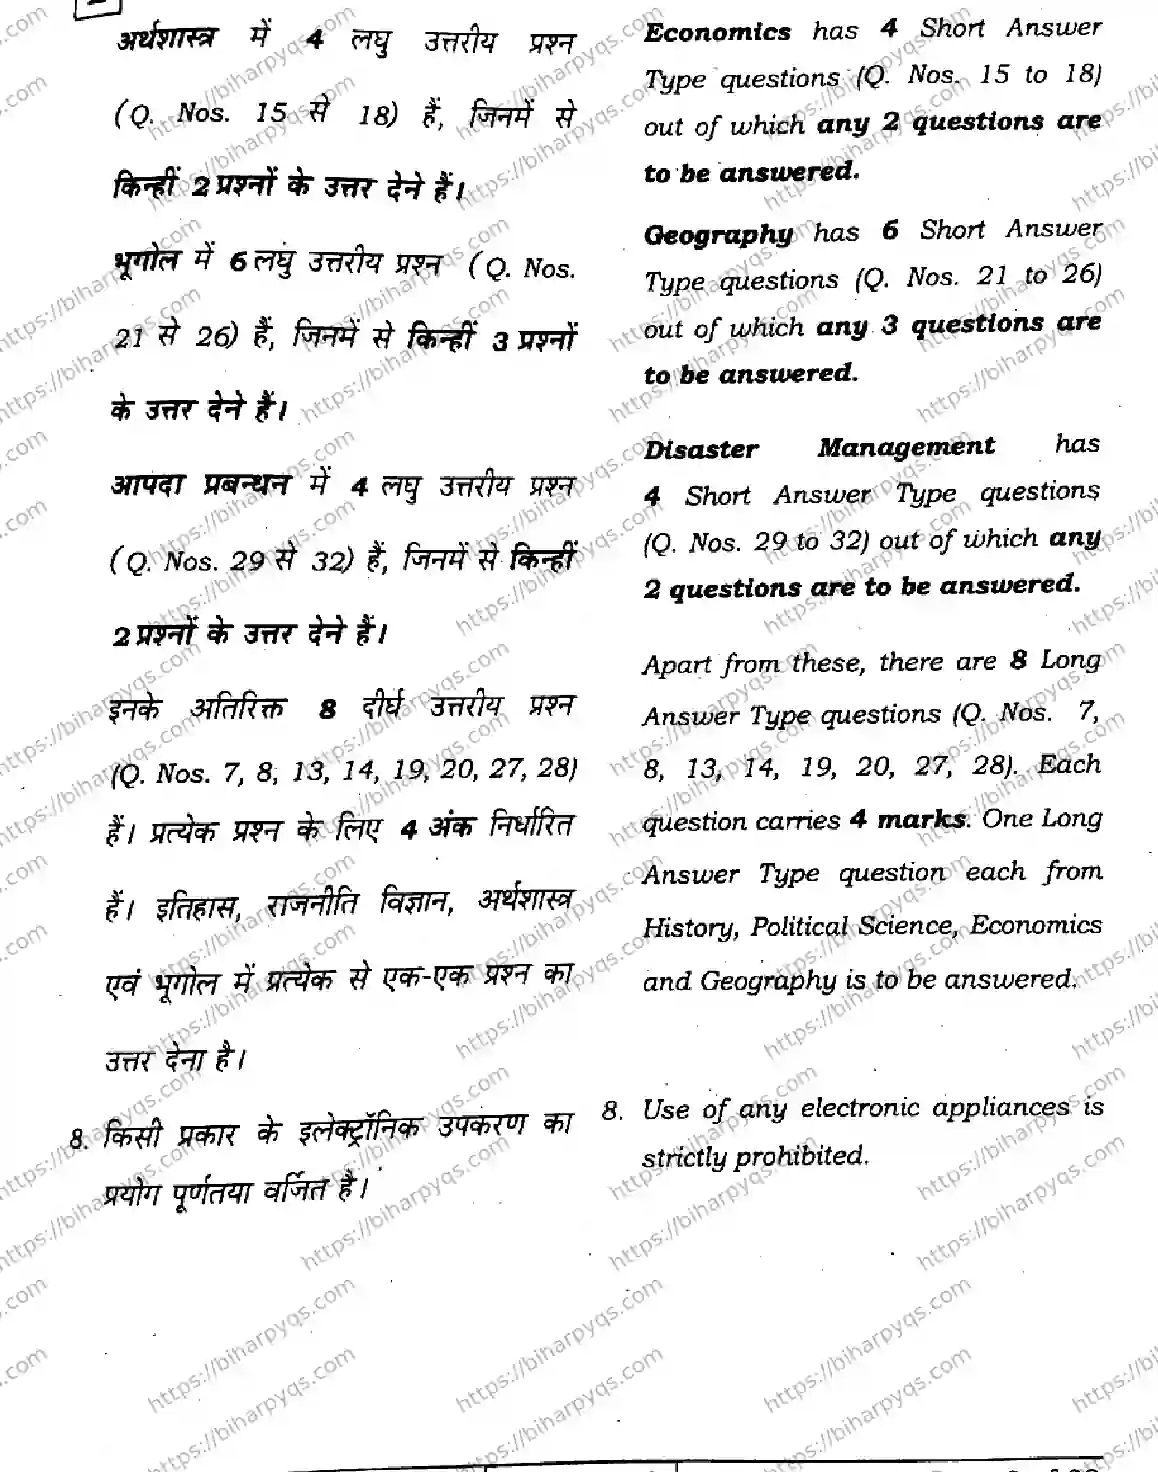 अर्थशास्त्र में 4 लघु उत्तरीय प्रश्न
(Q. Nos. 15 से 18) हैं, जिनमें से
किन्हीं 2 प्रश्नों के उत्तर देने हैं।
भूगोल में 6 लघु उत्तरीय प्रश्न (Q. Nos.
21 से 26) हैं, जिनमें से किन्हीं 3 प्रश्नों
के उत्तर देने हैं।
आपदा प्रबन्धन में 4 लघु उत्तरीय प्रश्न
(Q. Nos. 29 से 32) हैं, जिनमें से किन्हीं
2 प्रश्नों के उत्तर देने हैं।
इनके अतिरिक्त 8 दीर्घ उत्तरीय प्रश्न
(Q. Nos. 7, 8, 13, 14, 19, 20, 27, 28)
हैं। प्रत्येक प्रश्न के लिए 4 अंक निर्धारित
हैं। इतिहास, राजनीति विज्ञान, अर्थशास्त्र
एवं भूगोल में प्रत्येक से एक-एक प्रश्न का
उत्तर देना है।
8. किसी प्रकार के इलेक्ट्रॉनिक उपकरण का
प्रयोग पूर्णतया वर्जित है।
Economics has 4 Short Answer
Type questions (Q. Nos. 15 to 18)
out of which any 2 questions are
to be answered.
Geography has 6 Short Answer
Type questions (Q. Nos. 21 to 26)
out of which any 3 questions are
to be answered.
Disaster Management has
4 Short Answer Type questions
(Q. Nos. 29 to 32) out of which any
2 questions are to be answered.
Apart from these, there are 8 Long
Answer Type questions (Q. Nos. 7,
8, 13, 14, 19, 20, 27, 28). Each
question carries 4 marks. One Long
Answer Type question each from
History, Political Science, Economics
and Geography is to be answered.
8. Use of any electronic appliances is
strictly prohibited.
https://biharpyqs.com